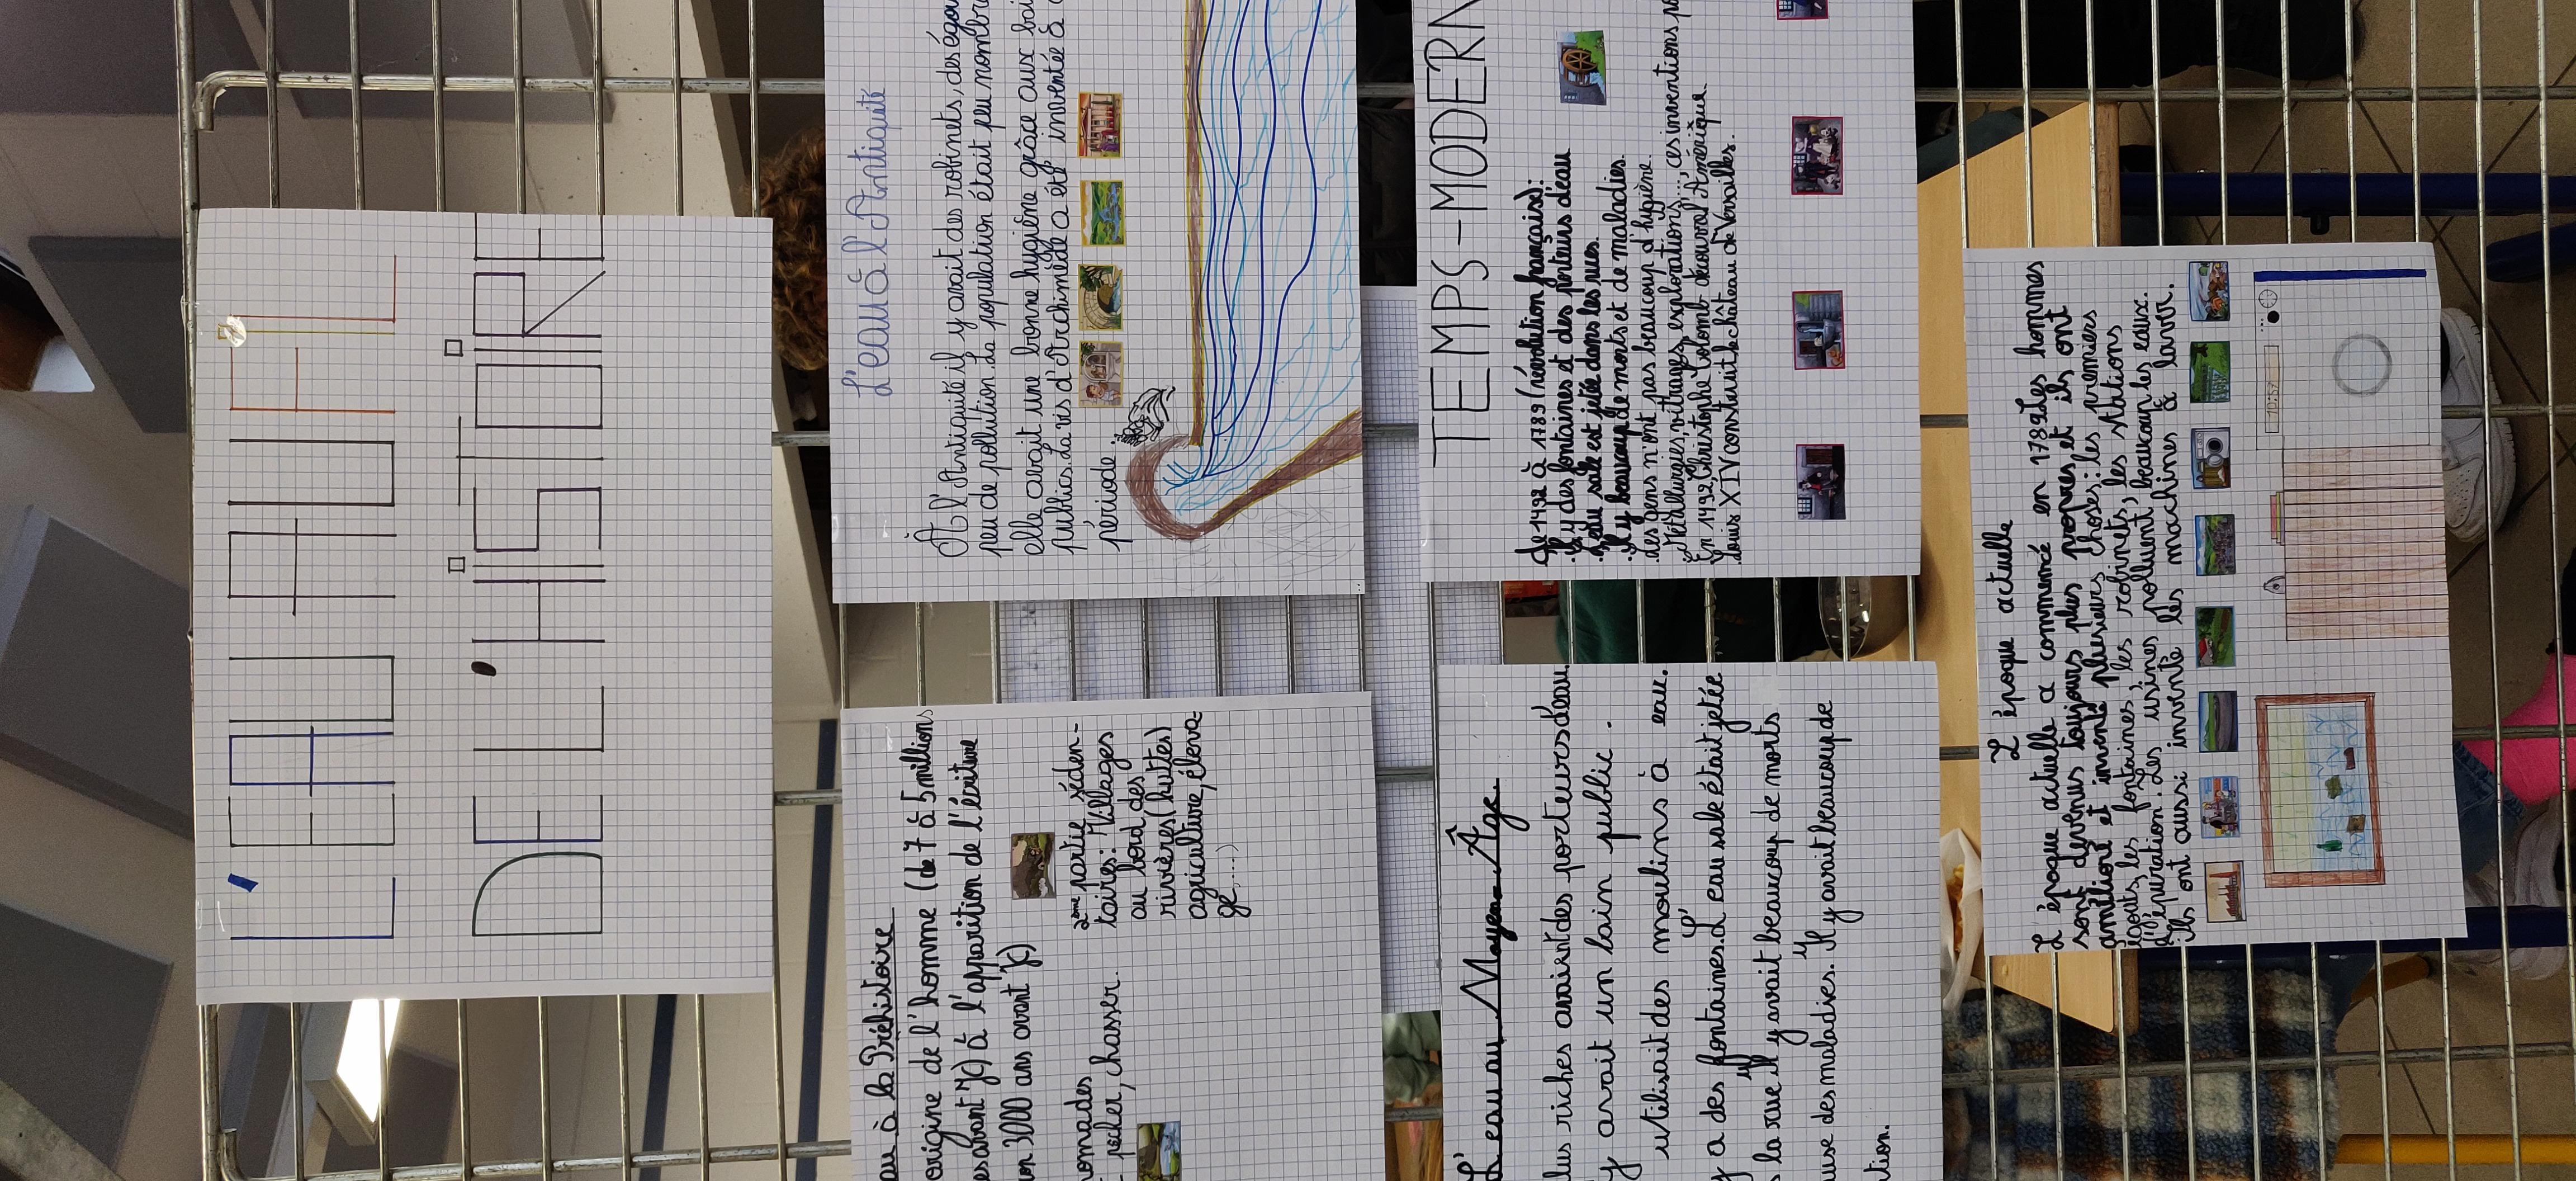 L'EAU AU FIL
DE L'HISTOIRE
au à la Préhistoire
origine de l'homme (de 7 à 5 millions
avant JC) à l'apparition de l'écriture
3000 ans avant JC)
nomades
pêcher, chasser.
2ème partie séden-
taires: Villages
au bord des
rivières (huttes)
agriculture, éleva-
ge,....)
L'eau à l'Antiquité
A l'Antiquité il y avait des robinets, des égou
peu de pollution. La population était peu nombre
elle avait une bonne hygiène grâce aux bai
publics. La vis d'Archimède a été inventée à c
période.
L'eau au Moyen-Âge.
lus riches avaient des porteurs d'eau.
y avait un bain public.
utilisait des moulins à eau.
y a des fontaines. L'eau sale était jetée
la rue il y avait beaucoup de morts
ause des maladies. Il y avait beaucoup de
tion.
TEMPS-MODERN
de 1492 à 1789 (révolution française):
.Il y des fontaines et des porteurs d'eau
.L'eau sale est jetée dans les rues.
.Il y beaucoup de morts et de maladies.
.les gens n'ont pas beaucoup d'hygiène.
Métallurgies, vitrages, explorations...., ces inventions
En 1492, Christophe Colomb découvre l'Amérique.
.Louis XIV construit le château de Versailles.
L'époque actuelle
L'époque actuelle a commencé en 1789. Les hommes
sont devenus toujours plus propres et ils ont
amélioré et inventé plusieurs choses: les premiers
égouts, les fontaines, les robinets, les stations
d'épuration. Les usines polluent beaucoup les eaux.
ils ont aussi inventé les machines à laver.
10:57